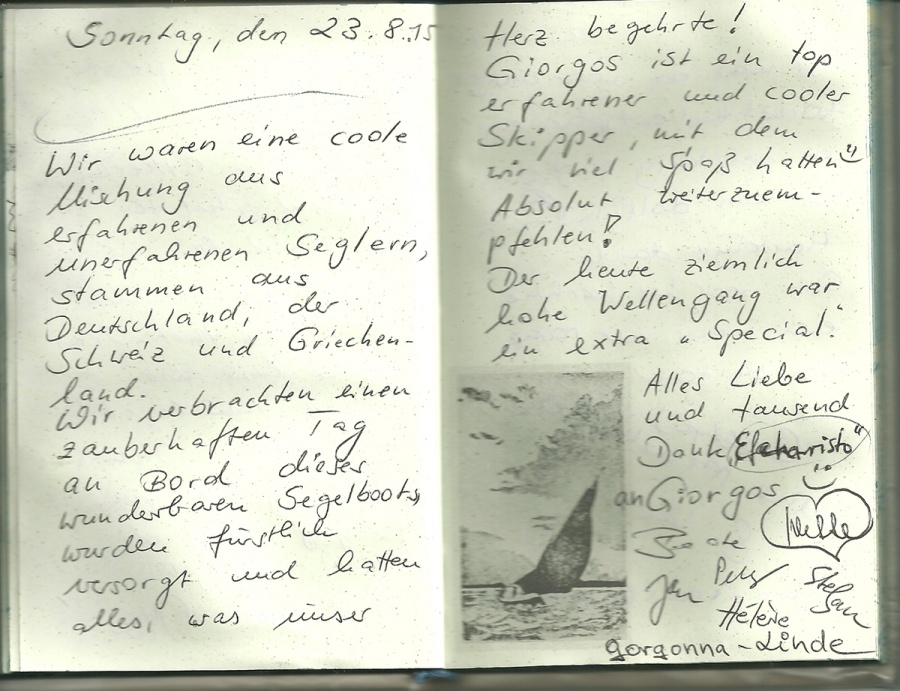 Sonntag, den 23.8.15
Wir waren eine coole
Mischung aus
erfahrenen und
unerfahrenen Seglern,
stammen aus
Deutschland, der
Schweiz und Griechen-
land.
Wir verbrachten einen
zauberhaften Tag
an Bord dieses
wunderbaren Segelboots,
wurden fürstlich
versorgt und hatten
alles, was unser
Herz begehrte!
Giorgos ist ein top
erfahrener und cooler
Skipper, mit dem
wir viel Spaß hatten
Absolut weiterzuem-
pfehlen!
Der heute ziemlich
hohe Wellengang war
ein extra „Special“.
Alles Liebe
und tausend
Dank „Efcharisto“
an Giorgos
Beate
Stefan
Hélène
gorgonna-Linde